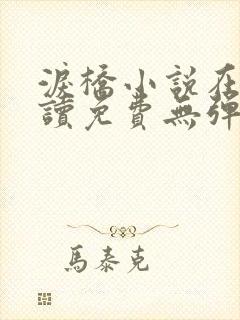 淚橋小說在
讀免費無彈
馬泰克